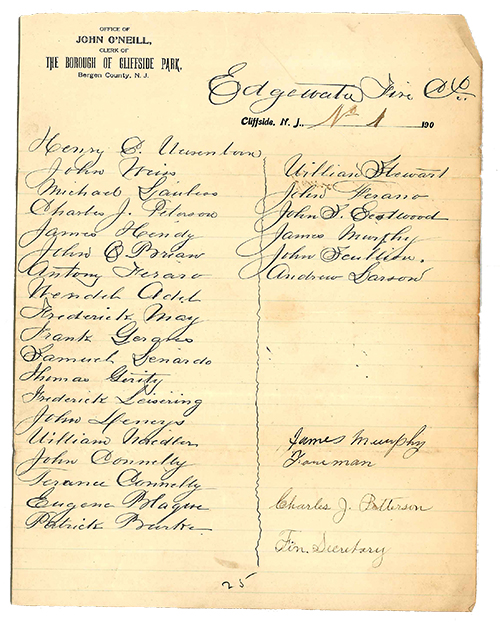 OFFICE OF
JOHN O'NEILL,
CLERK OF
THE BOROUGH OF CLIFFSIDE PARK,
Bergen County, N. J.
Edgewater Fire Co
Cliffside, N. J., No 1 190
Henry
John Weiss
Michael
Charles J. Peterson
James Hendy
John O Brian
Antony Ferano
Wendel Adel
Frederick May
Frank Gerques
Samuel Lenardo
Thomas Girity
Frederick Leisering
John Henrys
William Niedler
John Connelly
Terance Connelly
Eugene Blaque
Patrick Burke
William Stewart
John Ferano
John S. Eastwood
James Murphy
John Scullion.
Andrew Larson
James Murphy
Foreman
Charles J. Patterson
Fin. Secretary
25